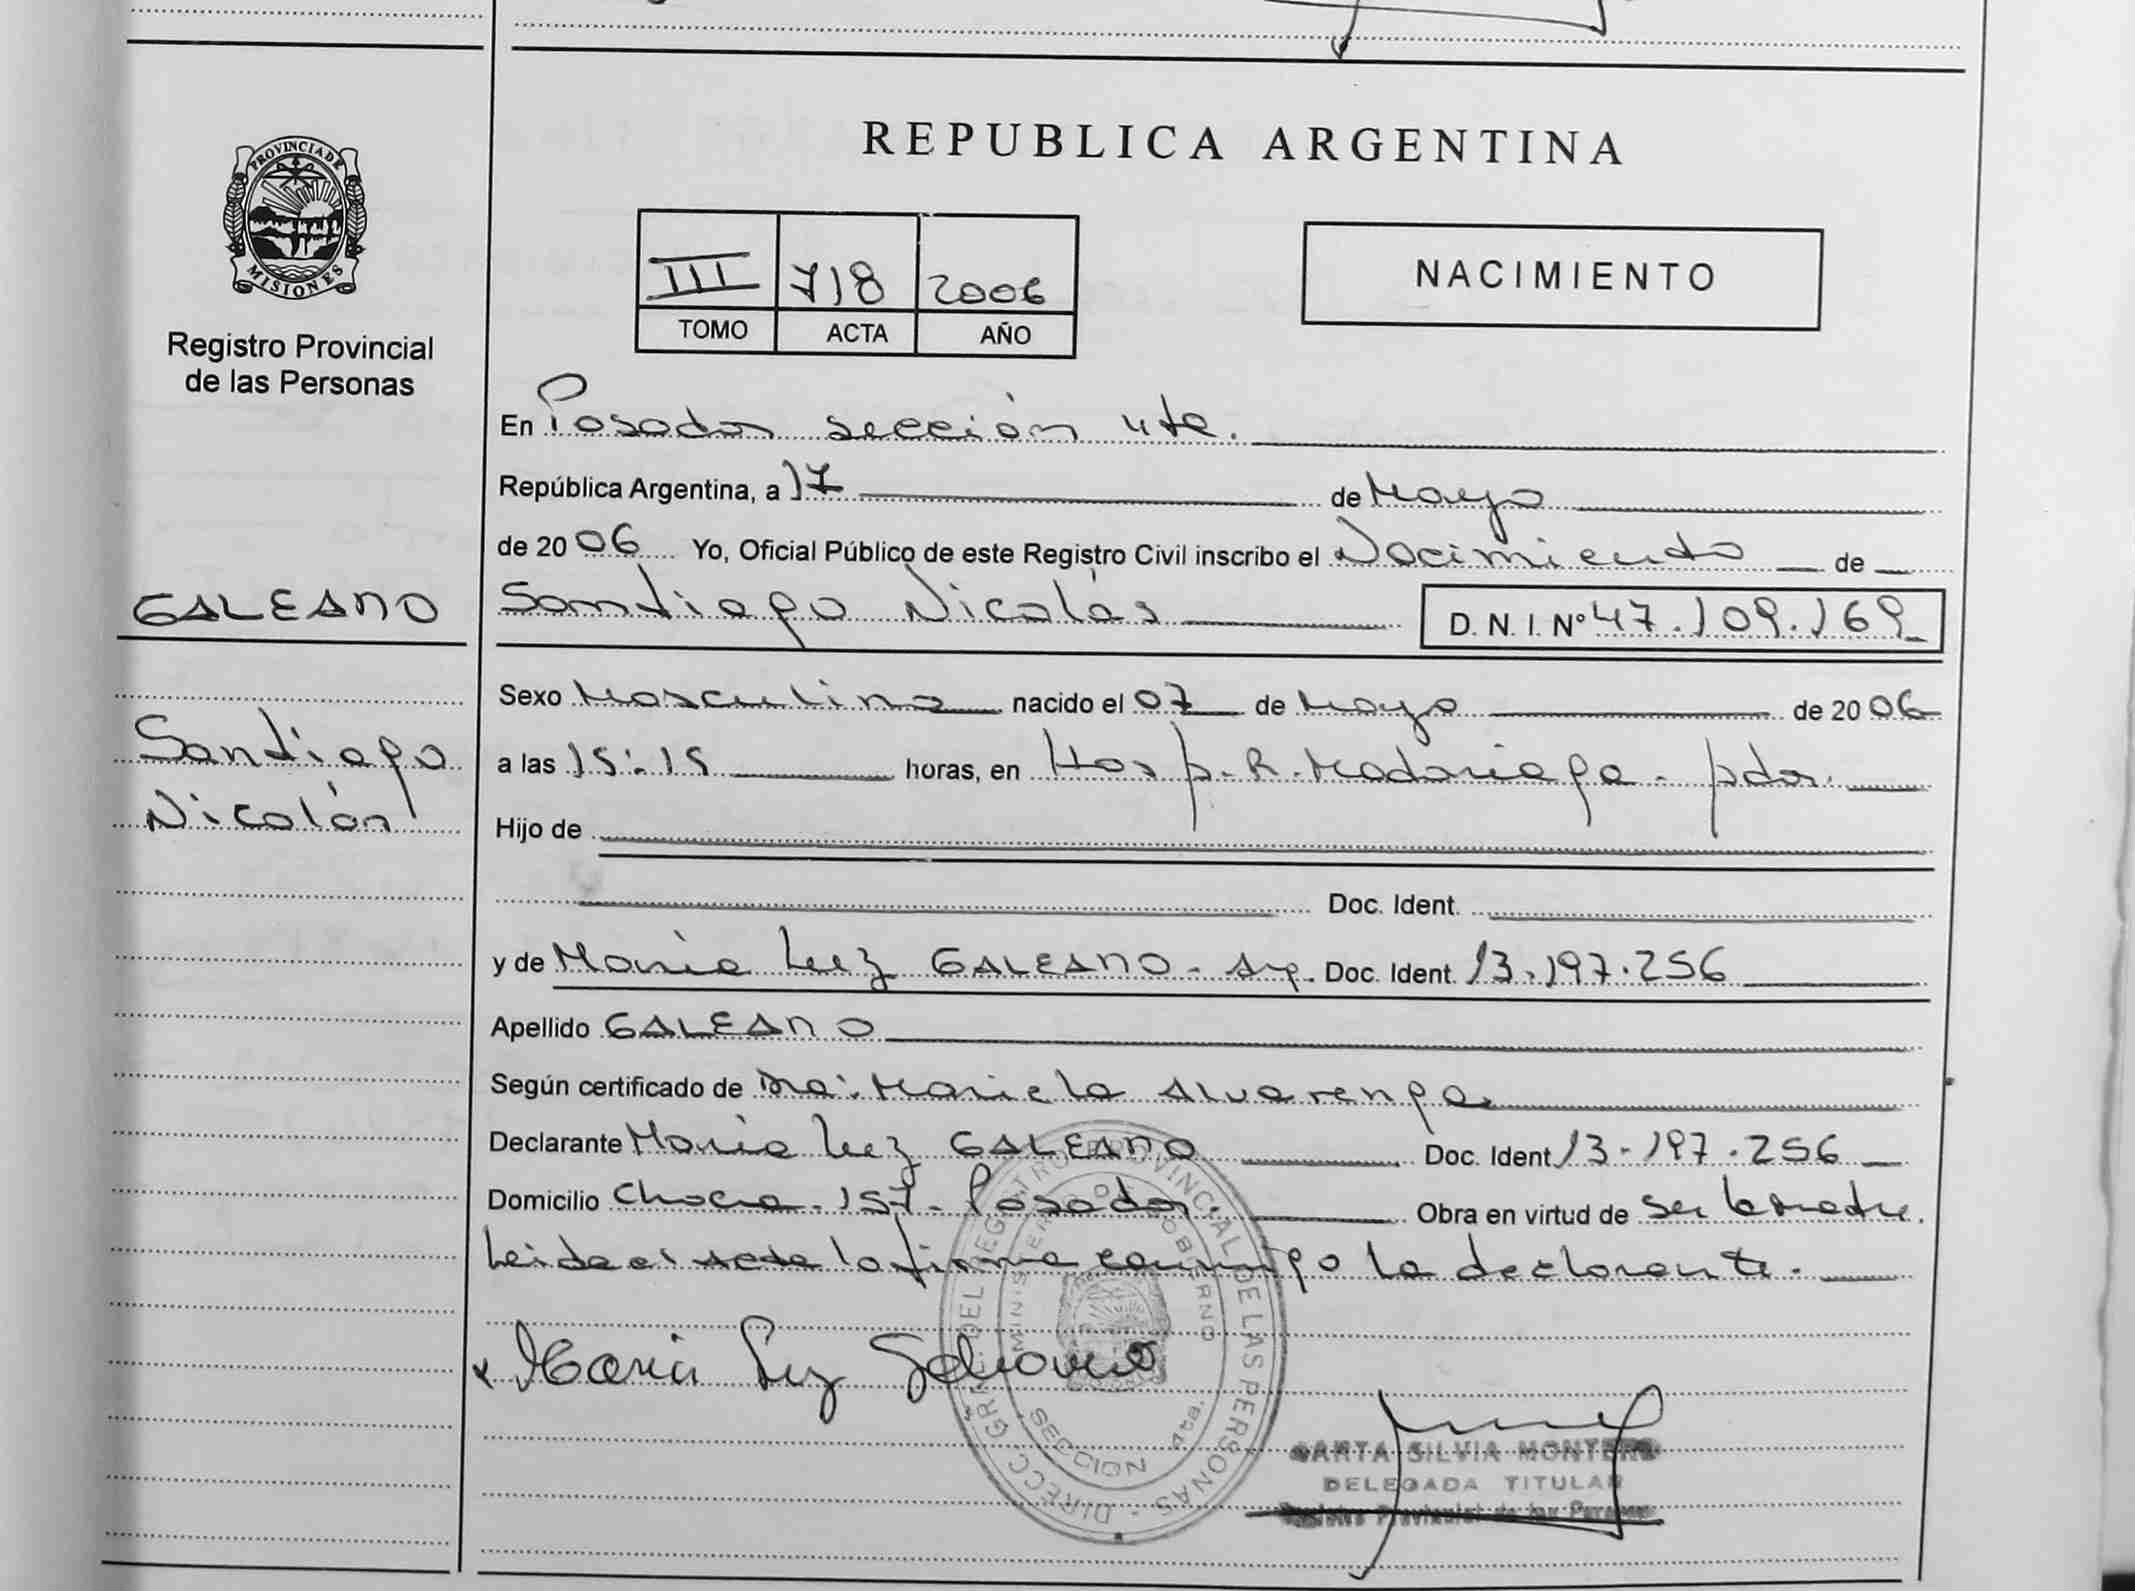 REPUBLICA ARGENTINA
PROVINCIA DE
MISIONES
Registro Provincial
de las Personas
III 718 2006
TOMO ACTA AÑO
NACIMIENTO
En Posadas sección 4ta.
República Argentina, a 17 de Mayo
de 2006 Yo, Oficial Público de este Registro Civil inscribo el Nacimiento de
GALEANO
Santiago Nicolás D. N. I. Nº 47.109.169
Sexo Masculino nacido el 07 de Mayo de 2006
Santiago
Nicolás
a las 15:15 horas, en Hosp. R. Madariaga - pdas.
Hijo de
Doc. Ident.
y de María Luz GALEANO - Doc. Ident. 13.197.256
Apellido GALEANO
Según certificado de Dra: Mariela Alvarenga
Declarante María Luz GALEANO Doc. Ident 13.197.256
Domicilio 157 - Posadas. Obra en virtud de ser la madre.
Leída el acta la firma conmigo la declarante.
x Maria Luz Galeano
DIRECC. GRAL. DEL REGISTRO PROVINCIAL DE LAS PERSONAS
MINISTERIO DE GOBIERNO
SECCION 4ta.
SILVIA MONTERO
DELEGADA TITULAR
Registro Provincial de las Personas